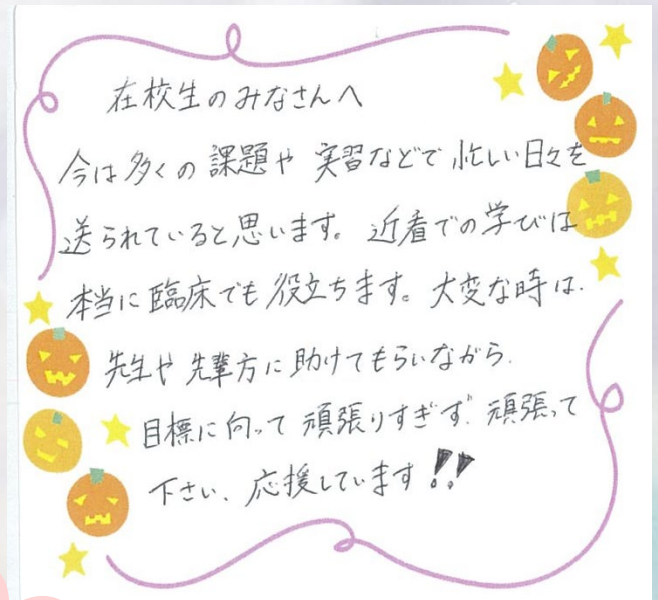 在校生のみなさんへ
今は多くの課題や実習などで忙しい日々を
送られていると思います。近看での学びは
本当に臨床でも役立ちます。大変な時は、
先生や先輩方に助けてもらいながら、
目標に向って頑張りすぎず、頑張って
下さい、応援しています!!